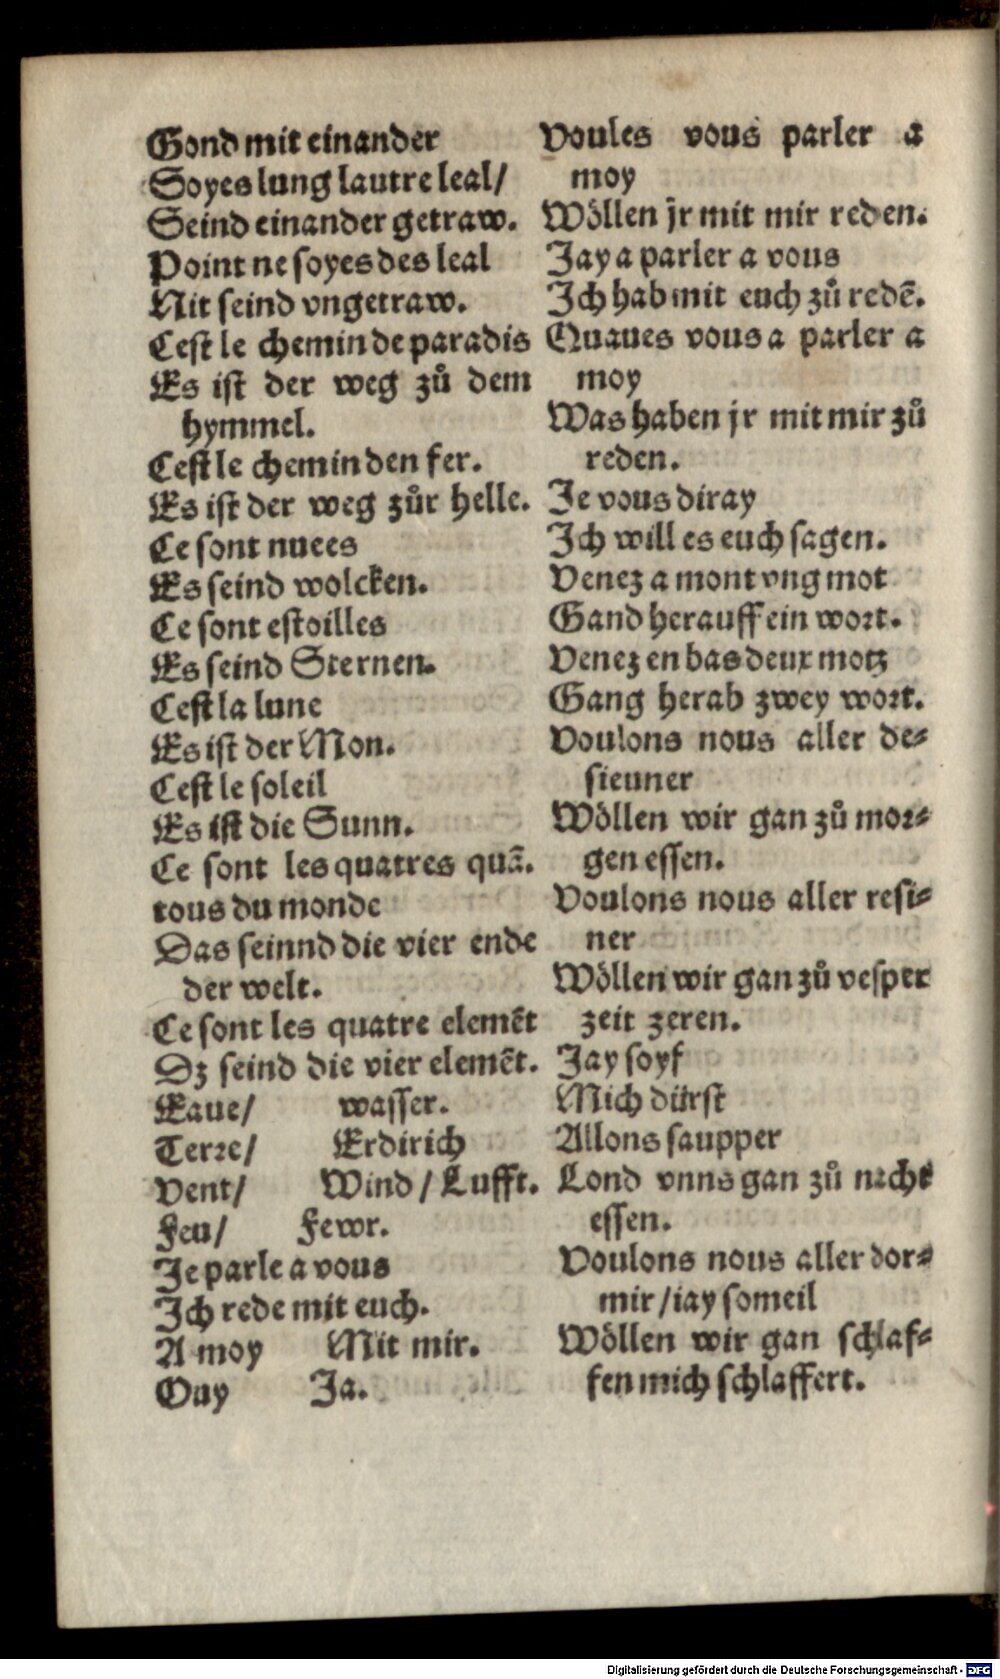 Gond mit einander
Soyes lung lautre leal/
Seind einander getraw.
Point ne soyes des leal
Nit seind vngetraw.
Cest le chemin de paradis
Es ist der weg zů dem
hymmel.
Cest le chemin den fer.
Es ist der weg zůr helle.
Ce sont nuees
Es seind wolcken.
Ce sont estoilles
Es seind Sternen.
Cest la lune
Es ist der Mon.
Cest le soleil
Es ist die Sunn.
Ce sont les quatres quā.
tous du monde
Das seinnd die vier ende
der welt.
Ce sont les quatre elemēt
Dz seind die vier elemēt.
Eaue/ wasser.
Terre/ Erdirich
Vent/ Wind / Lufft.
Feu/ Fewr.
Je parle a vous
Ich rede mit euch.
A moy Mit mir.
Ouy Ja.
Voules vous parler a
moy
Wöllen jr mit mir reden.
Jay a parler a vous
Ich hab mit euch zů redē.
Quaues vous a parler a
moy
Was haben jr mit mir zů
reden.
Je vous diray
Ich will es euch sagen.
Venez a mont vng mot
Gand herauff ein wort.
Venez en bas deux motz
Gang herab zwey wort.
Voulons nous aller de⸗
sieuner
Wöllen wir gan zů mor⸗
gen essen.
Voulons nous aller resi⸗
ner
Wöllen wir gan zů vesper
zeit zeren.
Jay soyf
Mich dürst
Allons saupper
Lond vnns gan zů nacht
essen.
Voulons nous aller dor⸗
mir /iay someil
Wöllen wir gan schlaf⸗
fen mich schlaffert.
Digitalisierung gefördert durch die Deutsche Forschungsgemeinschaft - DFG